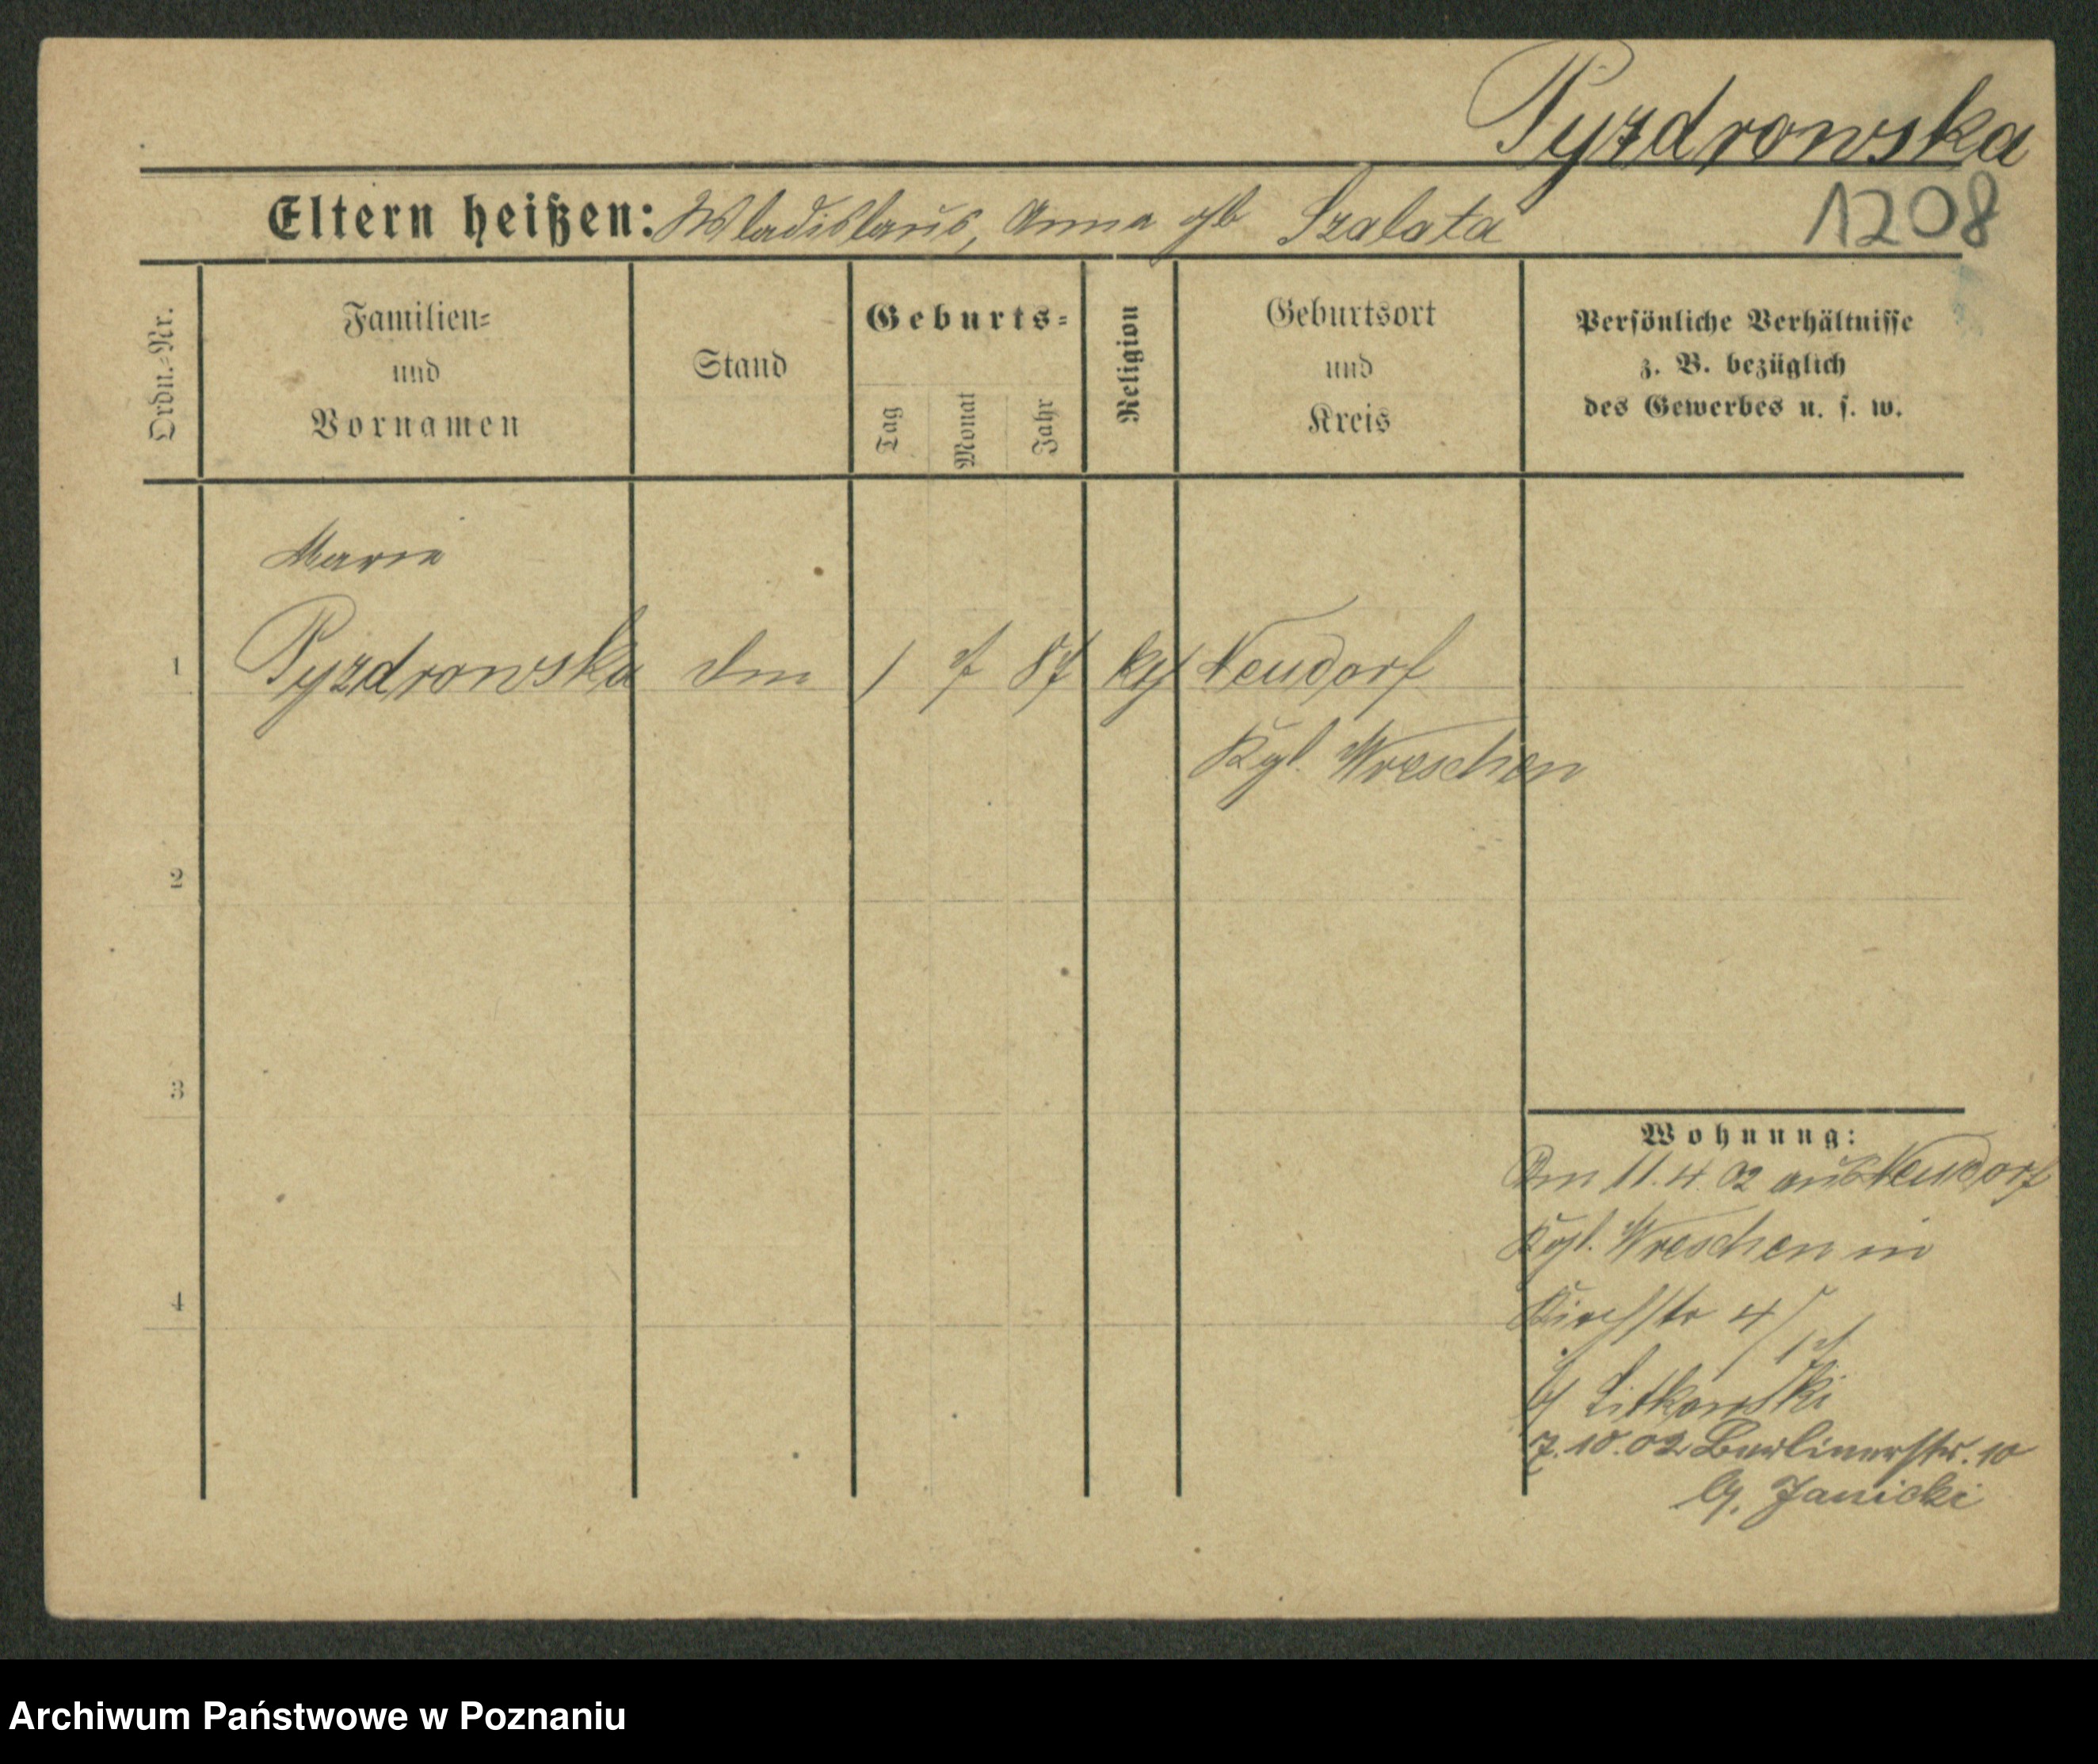 Pyzdrowska
1208
Eltern heißen: Wladislaus, Anna gb Szalata
Ordn.-Nr.
Familien-
und
Vornamen
Stand
Geburts-
Tag
Monat
Jahr
Religion
Geburtsort
und
Kreis
Persönliche Verhältnisse
z. B. bezüglich
des Gewerbes u. s. w.
Marie
1 Pyzdrowska 1 7 87 kth Neudorf
Kgl. Wreschen
2
3
4
Wohnung:
Am 11.4.02 aus Neudorf
Kgl. Wreschen in
Kirchstr 4
b/ Litkowski
7.10.02 Berlinerstr. 10
b/. Janicki
Archiwum Państwowe w Poznaniu